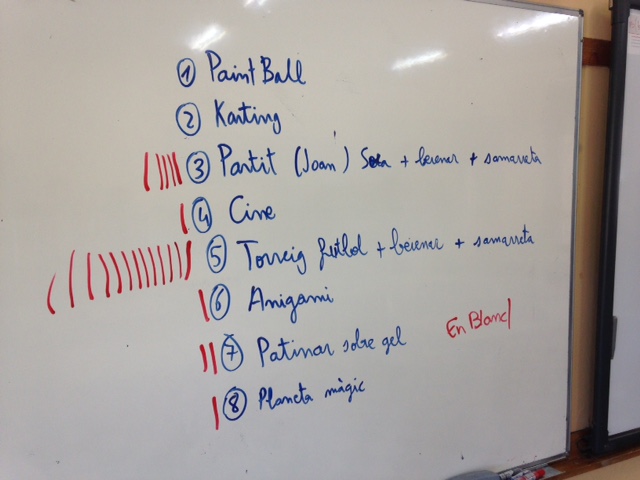 1 Paint Ball
2 Karting
3 Partit (Joan) + berenar + samarreta
4 Cine
5 Torneig futbol + berenar + samarreta
6 Anigami
7 Patinar sobre gel
En Blanc
8 Planeta màgic